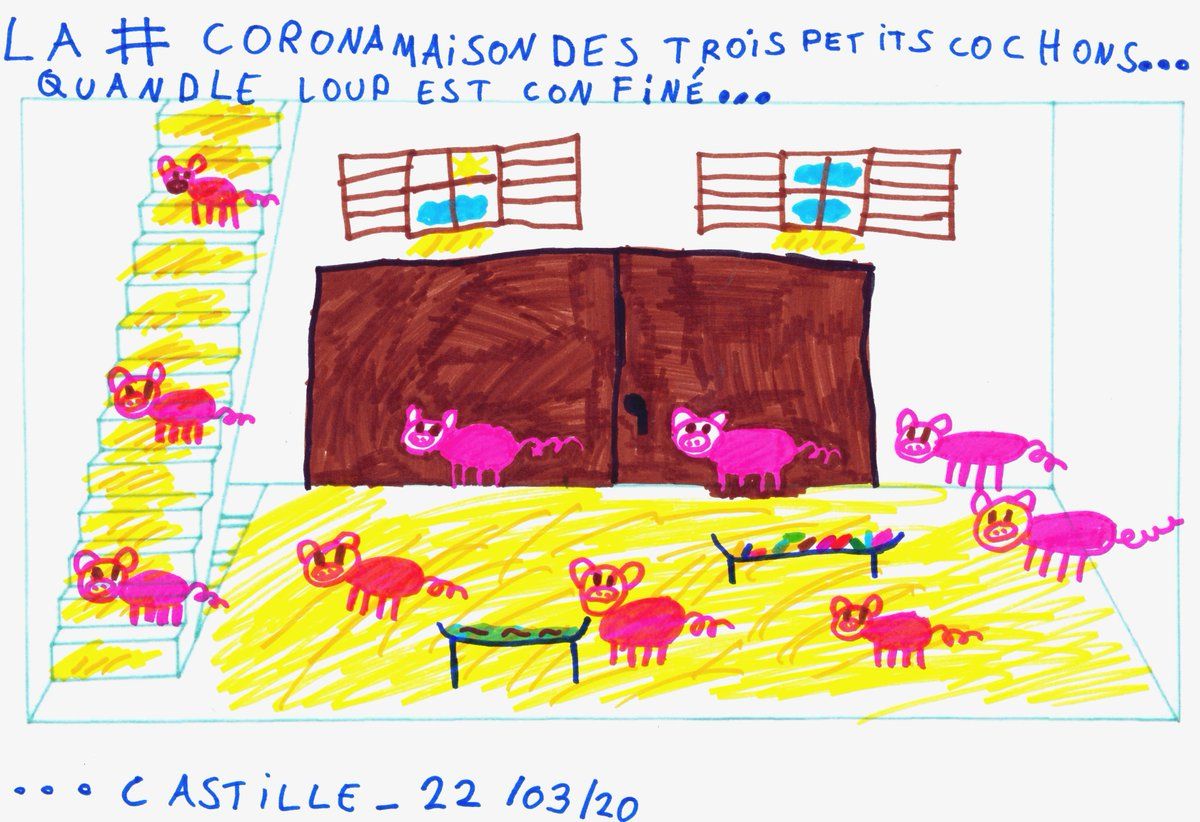 LA # CORONAMAiSON DES TROiS PETiTS COCHONS...
QUANDLE LOUP EST CONFiNÉ...
... CASTiLLE_22/03/20